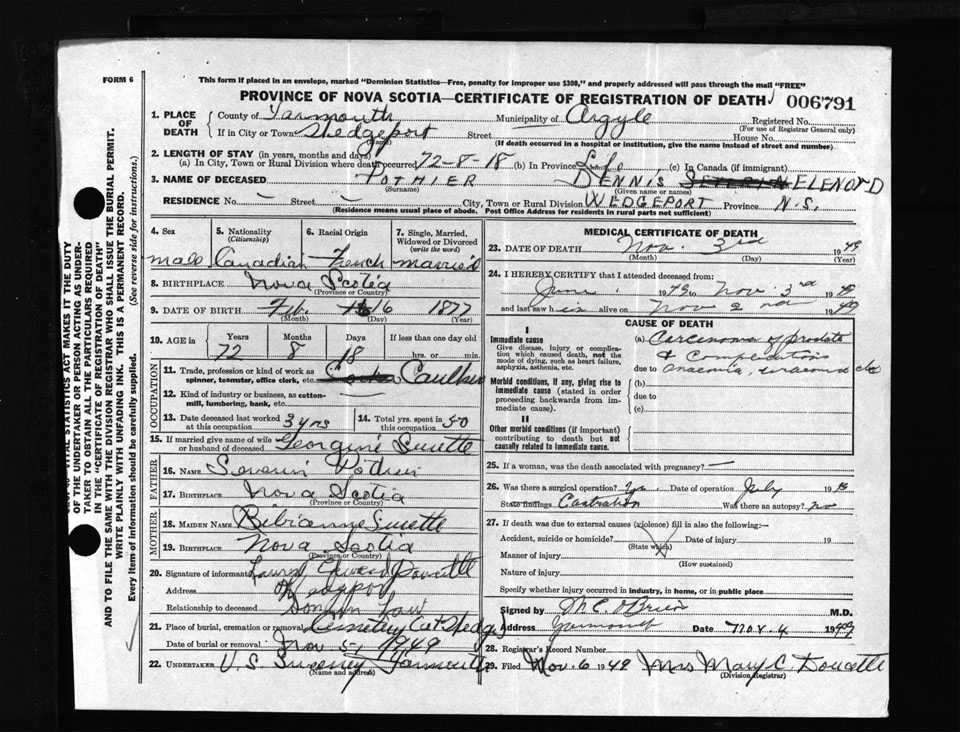 FORM 6
This form if placed in an envelope, marked "Dominion Statistics—Free, penalty for improper use $300," and properly addressed will pass through the mail "FREE"
PROVINCE OF NOVA SCOTIA—CERTIFICATE OF REGISTRATION OF DEATH 006791
1. PLACE OF DEATH County of Yarmouth Municipality of Argyle Registered No.
(For use of Registrar General only)
If in City or Town Wedgeport Street House No.
(Name)
(If death occurred in a hospital or institution, give the name instead of street and number)
2. LENGTH OF STAY (in years, months and days)
(a) In City, Town or Rural Division where death occurred 72-8-18 (b) In Province Life (c) In Canada (if immigrant)
3. NAME OF DECEASED POTHIER DENNIS SEVERIN ELENORD
(Surname) (Given name or names)
RESIDENCE No. — Street — City, Town or Rural Division WEDGEPORT Province N.S.
(Residence means usual place of abode. Post Office Address for residents in rural parts not sufficient)
4. Sex 5. Nationality (Citizenship) 6. Racial Origin 7. Single, Married, Widowed or Divorced (write the word)
male Canadian French married
8. BIRTHPLACE Nova Scotia
(Province or Country)
9. DATE OF BIRTH Feb. 16 1877
(Month) (Day) (Year)
10. AGE in Years Months Days If less than one day old
72 8 18 hrs. or min.
OCCUPATION
11. Trade, profession or kind of work as spinner, teamster, office clerk, etc. Caulker
12. Kind of industry or business, as cotton-mill, lumbering, bank, etc.
13. Date deceased last worked at this occupation 3 yrs 14. Total yrs. spent in this occupation 50
15. If married give name of wife or husband of deceased Georgine Surette
FATHER
16. NAME Severin Pothier
17. BIRTHPLACE Nova Scotia
(Province or Country)
MOTHER
18. MAIDEN NAME Bibianne Surette
19. BIRTHPLACE Nova Scotia
(Province or Country)
20. Signature of informant Edward Doucette
Address Wedgeport
Relationship to deceased Son in law
21. Place of burial, cremation or removal Cemetery at Wedge
Date of burial or removal Nov 5, 1949
22. UNDERTAKER V.S. Sweeney Yarmouth
(Name and address)
MEDICAL CERTIFICATE OF DEATH
23. DATE OF DEATH Nov. 3rd 1949
(Month) (Day) (Year)
24. I HEREBY CERTIFY that I attended deceased from:
June 1949 to Nov. 3rd 1949
and last saw h is alive on Nov 2nd 1949
CAUSE OF DEATH
I
Immediate cause
Give disease, injury or complication which caused death, not the mode of dying, such as heart failure, asphyxia, asthenia, etc.
(a) Carcinoma of prostate
& Complications
due to anaemia, uraemia etc
Morbid conditions, if any, giving rise to immediate cause (stated in order proceeding backwards from immediate cause).
(b)
due to
(c)
II
Other morbid conditions (if important) contributing to death but not causally related to immediate cause.
25. If a woman, was the death associated with pregnancy? —
26. Was there a surgical operation? Date of operation July 19
State findings Castration Was there an autopsy? no
27. If death was due to external causes (violence) fill in also the following:-
Accident, suicide or homicide? Date of injury 19
(State which)
Manner of injury
(How sustained)
Nature of injury
Specify whether injury occurred in industry, in home, or in public place
Signed by M.C. O'Brien M.D.
Address Yarmouth Date Nov. 4 1949
28. Registrar's Record Number
29. Filed Nov. 6 1949 Mrs Mary C. Doucette
(Division Registrar)
VITAL STATISTICS ACT MAKES IT THE DUTY
OF THE UNDERTAKER OR PERSON ACTING AS UNDER-
TAKER TO OBTAIN ALL THE PARTICULARS REQUIRED
IN THE "CERTIFICATE OF REGISTRATION OF DEATH"
AND TO FILE THE SAME WITH THE DIVISION REGISTRAR WHO SHALL ISSUE THE BURIAL PERMIT.
WRITE PLAINLY WITH UNFADING INK. THIS IS A PERMANENT RECORD.
Every item of information should be carefully supplied. (See reverse side for instructions.)